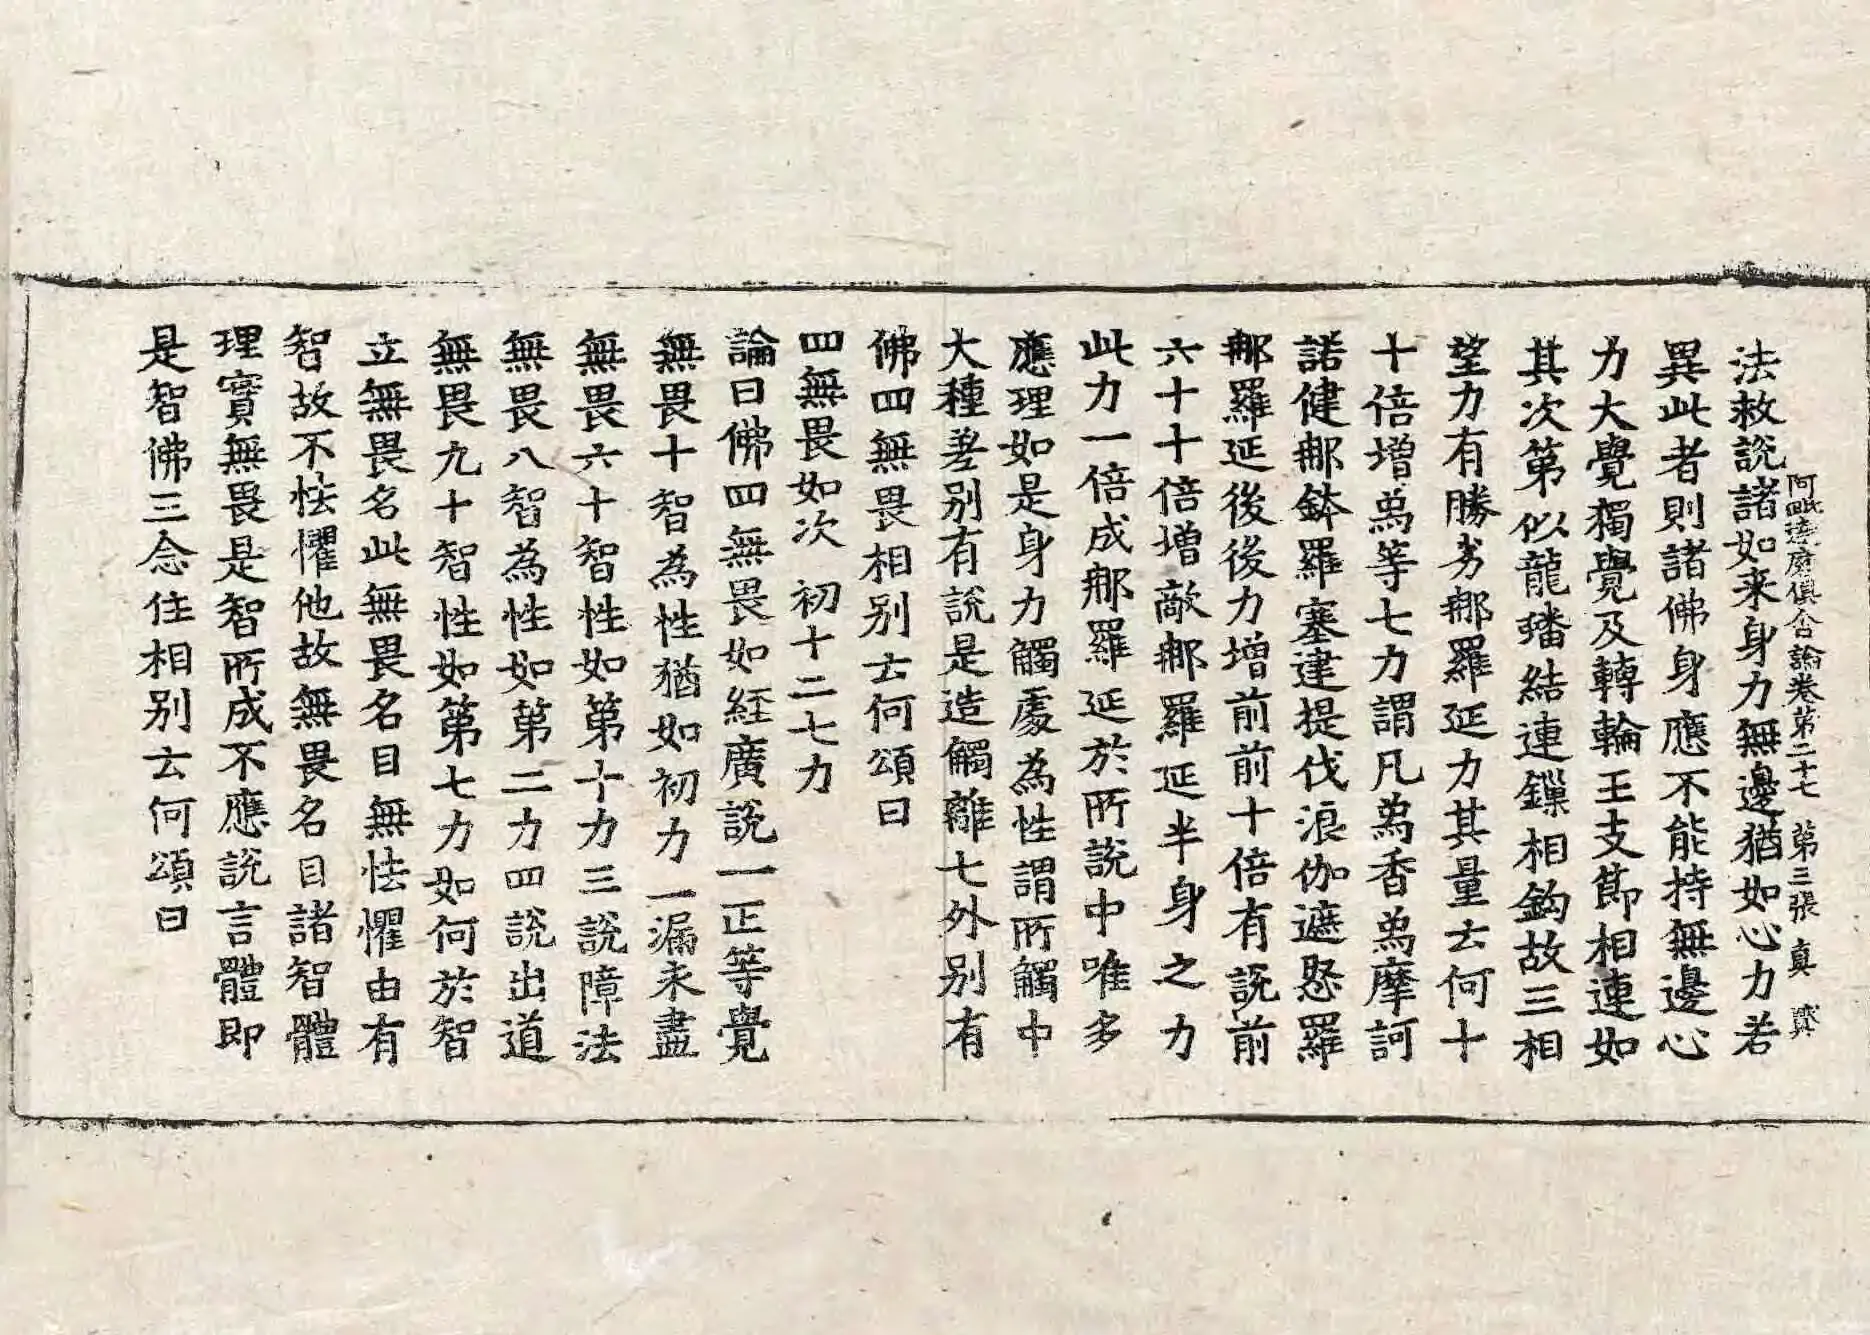 阿毗達磨俱舍論卷第二十七 第三張 真
法救說諸如来身力無邊猶如心力若
異此者則諸佛身應不能持無邊心
力大覺獨覺及轉輪王支節相連如
其次第似龍蟠結連鏁相鈎故三相
望力有勝劣那羅延力其量云何十
十倍增為等七力謂凡為香為摩訶
諾健那鉢羅塞建提伐浪伽遮怒羅
那羅延後後力增前前十倍有說前
六十十倍增敵那羅延半身之力
此力一倍成那羅延於所說中唯多
應理如是身力觸處為性謂所觸中
大種差别有說是造觸離七外别有
佛四無畏相别云何頌曰
四無畏如次 初十二七力
論曰佛四無畏如經廣說一正等覺
無畏十智為性猶如初力一漏永盡
無畏六十智性如第十力三說障法
無畏八智為性如第二力四說出道
無畏九十智性如第七力如何於智
立無畏名此無畏名目無怯懼由有
智故不怯懼他故無畏名目諸智體
理實無畏是智所成不應說言體即
是智佛三念住相别云何頌曰